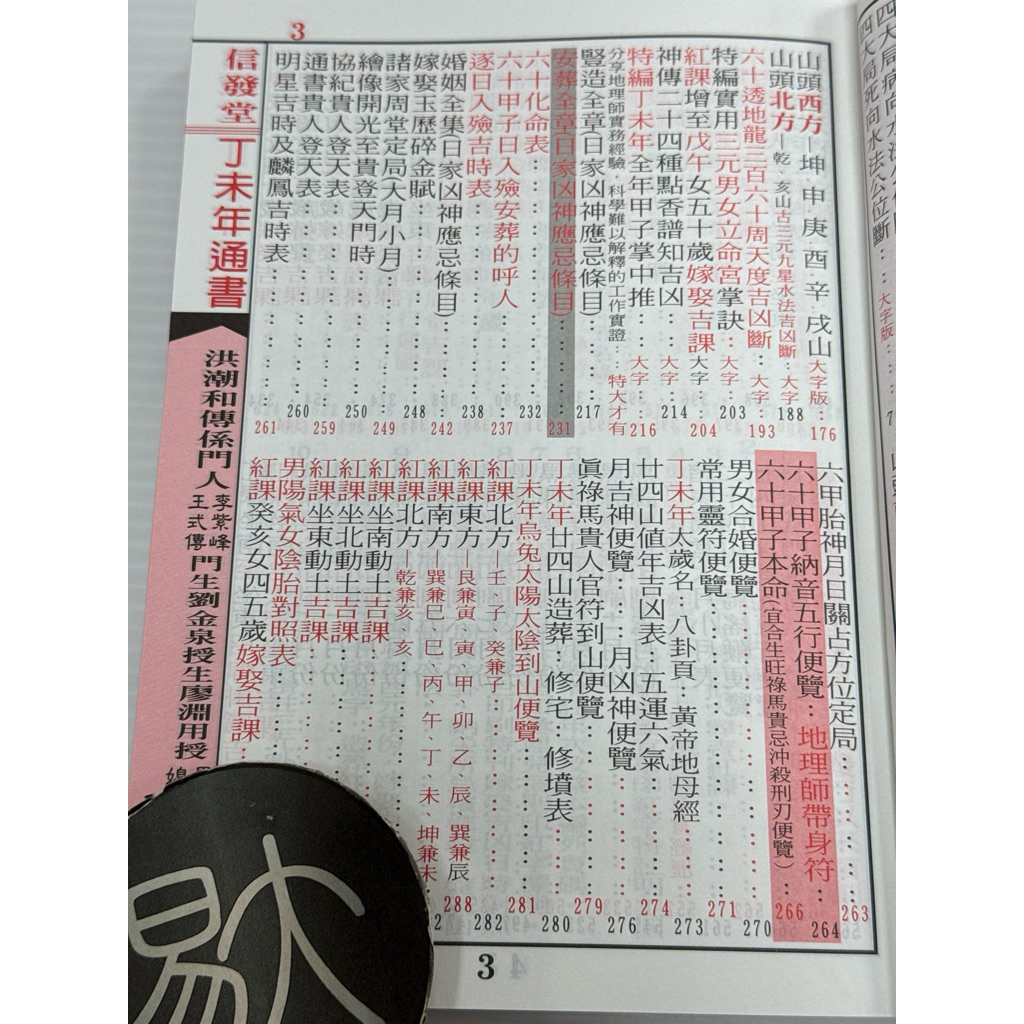 3
山頭西方－坤．申．庚．酉．辛．戌山 大字版：176
山頭北方－乾、亥山 古三元九星水法吉凶斷：大字：188
六十透地龍三百六十周天度吉凶斷：大字：193
特編實用三元男女立命宮掌訣：大字：203
紅課增至戊午女五十歲嫁娶吉課：大字：204
神傳二十四種點香譜知吉凶：大字：214
特編丁未年全年甲子掌中推：大字：216
分享地理師實務經驗，科學難以解釋的工作實證：特大才有
豎造全章(日家凶神應忌條目)：217
安葬全章(日家凶神應忌條目)：231
六十化命表：232
六十甲子日入殮安葬的呼人：237
逐日入殮吉時表：238
婚姻全集(日家凶神應忌條目)：242
嫁娶玉歷碎金賦：248
諸家周堂定局(大月小月)：249
繪像開光至貴登天門時：250
協紀貴人登天表：259
通書貴人登天表：260
明星吉時及麟鳳吉時表：261
六甲胎神月日關占方位定局：263
六十甲子納音五行便覽：地理師帶身符：264
六十甲子本命(宜合生旺祿馬貴忌沖殺刑刃便覽)：266
男女合婚便覽：270
常用靈符便覽：271
丁未年太歲名．八卦頁．黃帝地母經：273
廿四山值年吉凶表．五運六氣：274
月吉神便覽：月凶神便覽：276
眞祿馬貴人官符到山便覽：279
丁未年廿四山造葬．修宅．修墳表：280
丁未年烏兔太陽太陰到山便覽：281
紅課北方－壬、子、癸兼子：282
紅課東方－艮兼寅、寅、甲、卯、乙、辰、巽兼辰：288
紅課南方－巽兼巳、巳、丙、午、丁、未、坤兼未
紅課北方－乾兼亥、亥
紅課坐南動土吉課
紅課坐北動土吉課
紅課坐東動土吉課
男陽氣女陰胎對照表
紅課癸亥女四五歲嫁娶吉課
信發堂 丁未年通書
洪潮和傳係門人 李紫峰 王式傳 門生劉金泉授生廖淵用授
3